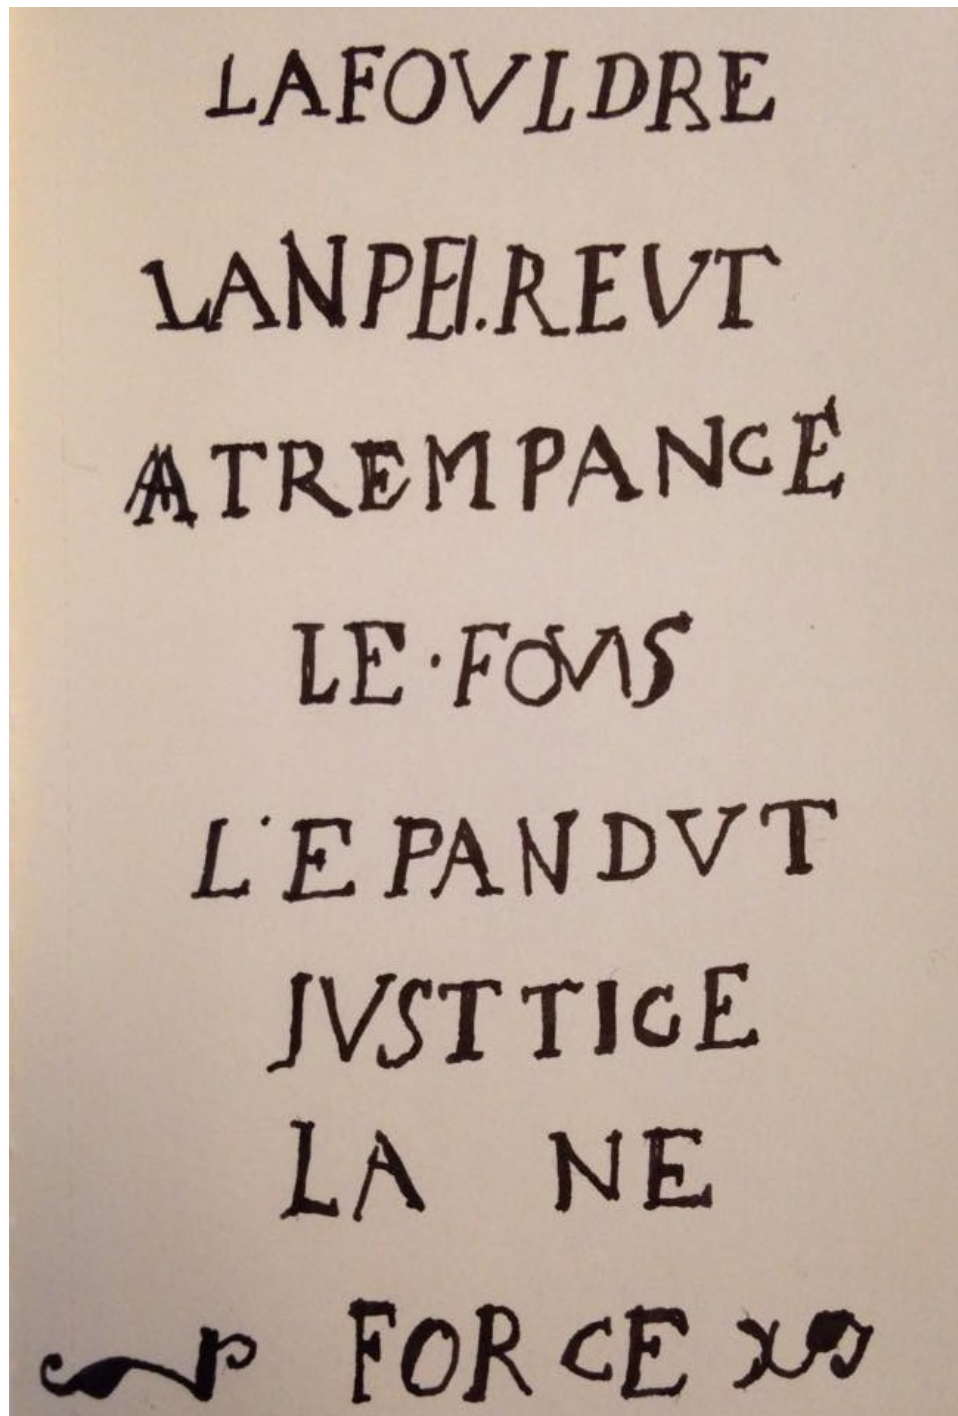 LAFOVLDRE
LANPEI.REUT
ATREMPANCE
LE·FOVS
L'EPANDVT
JVSTTICE
LA NE
FORCE